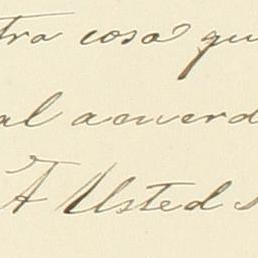 tra cosa qu
al acuerd
A Usted s